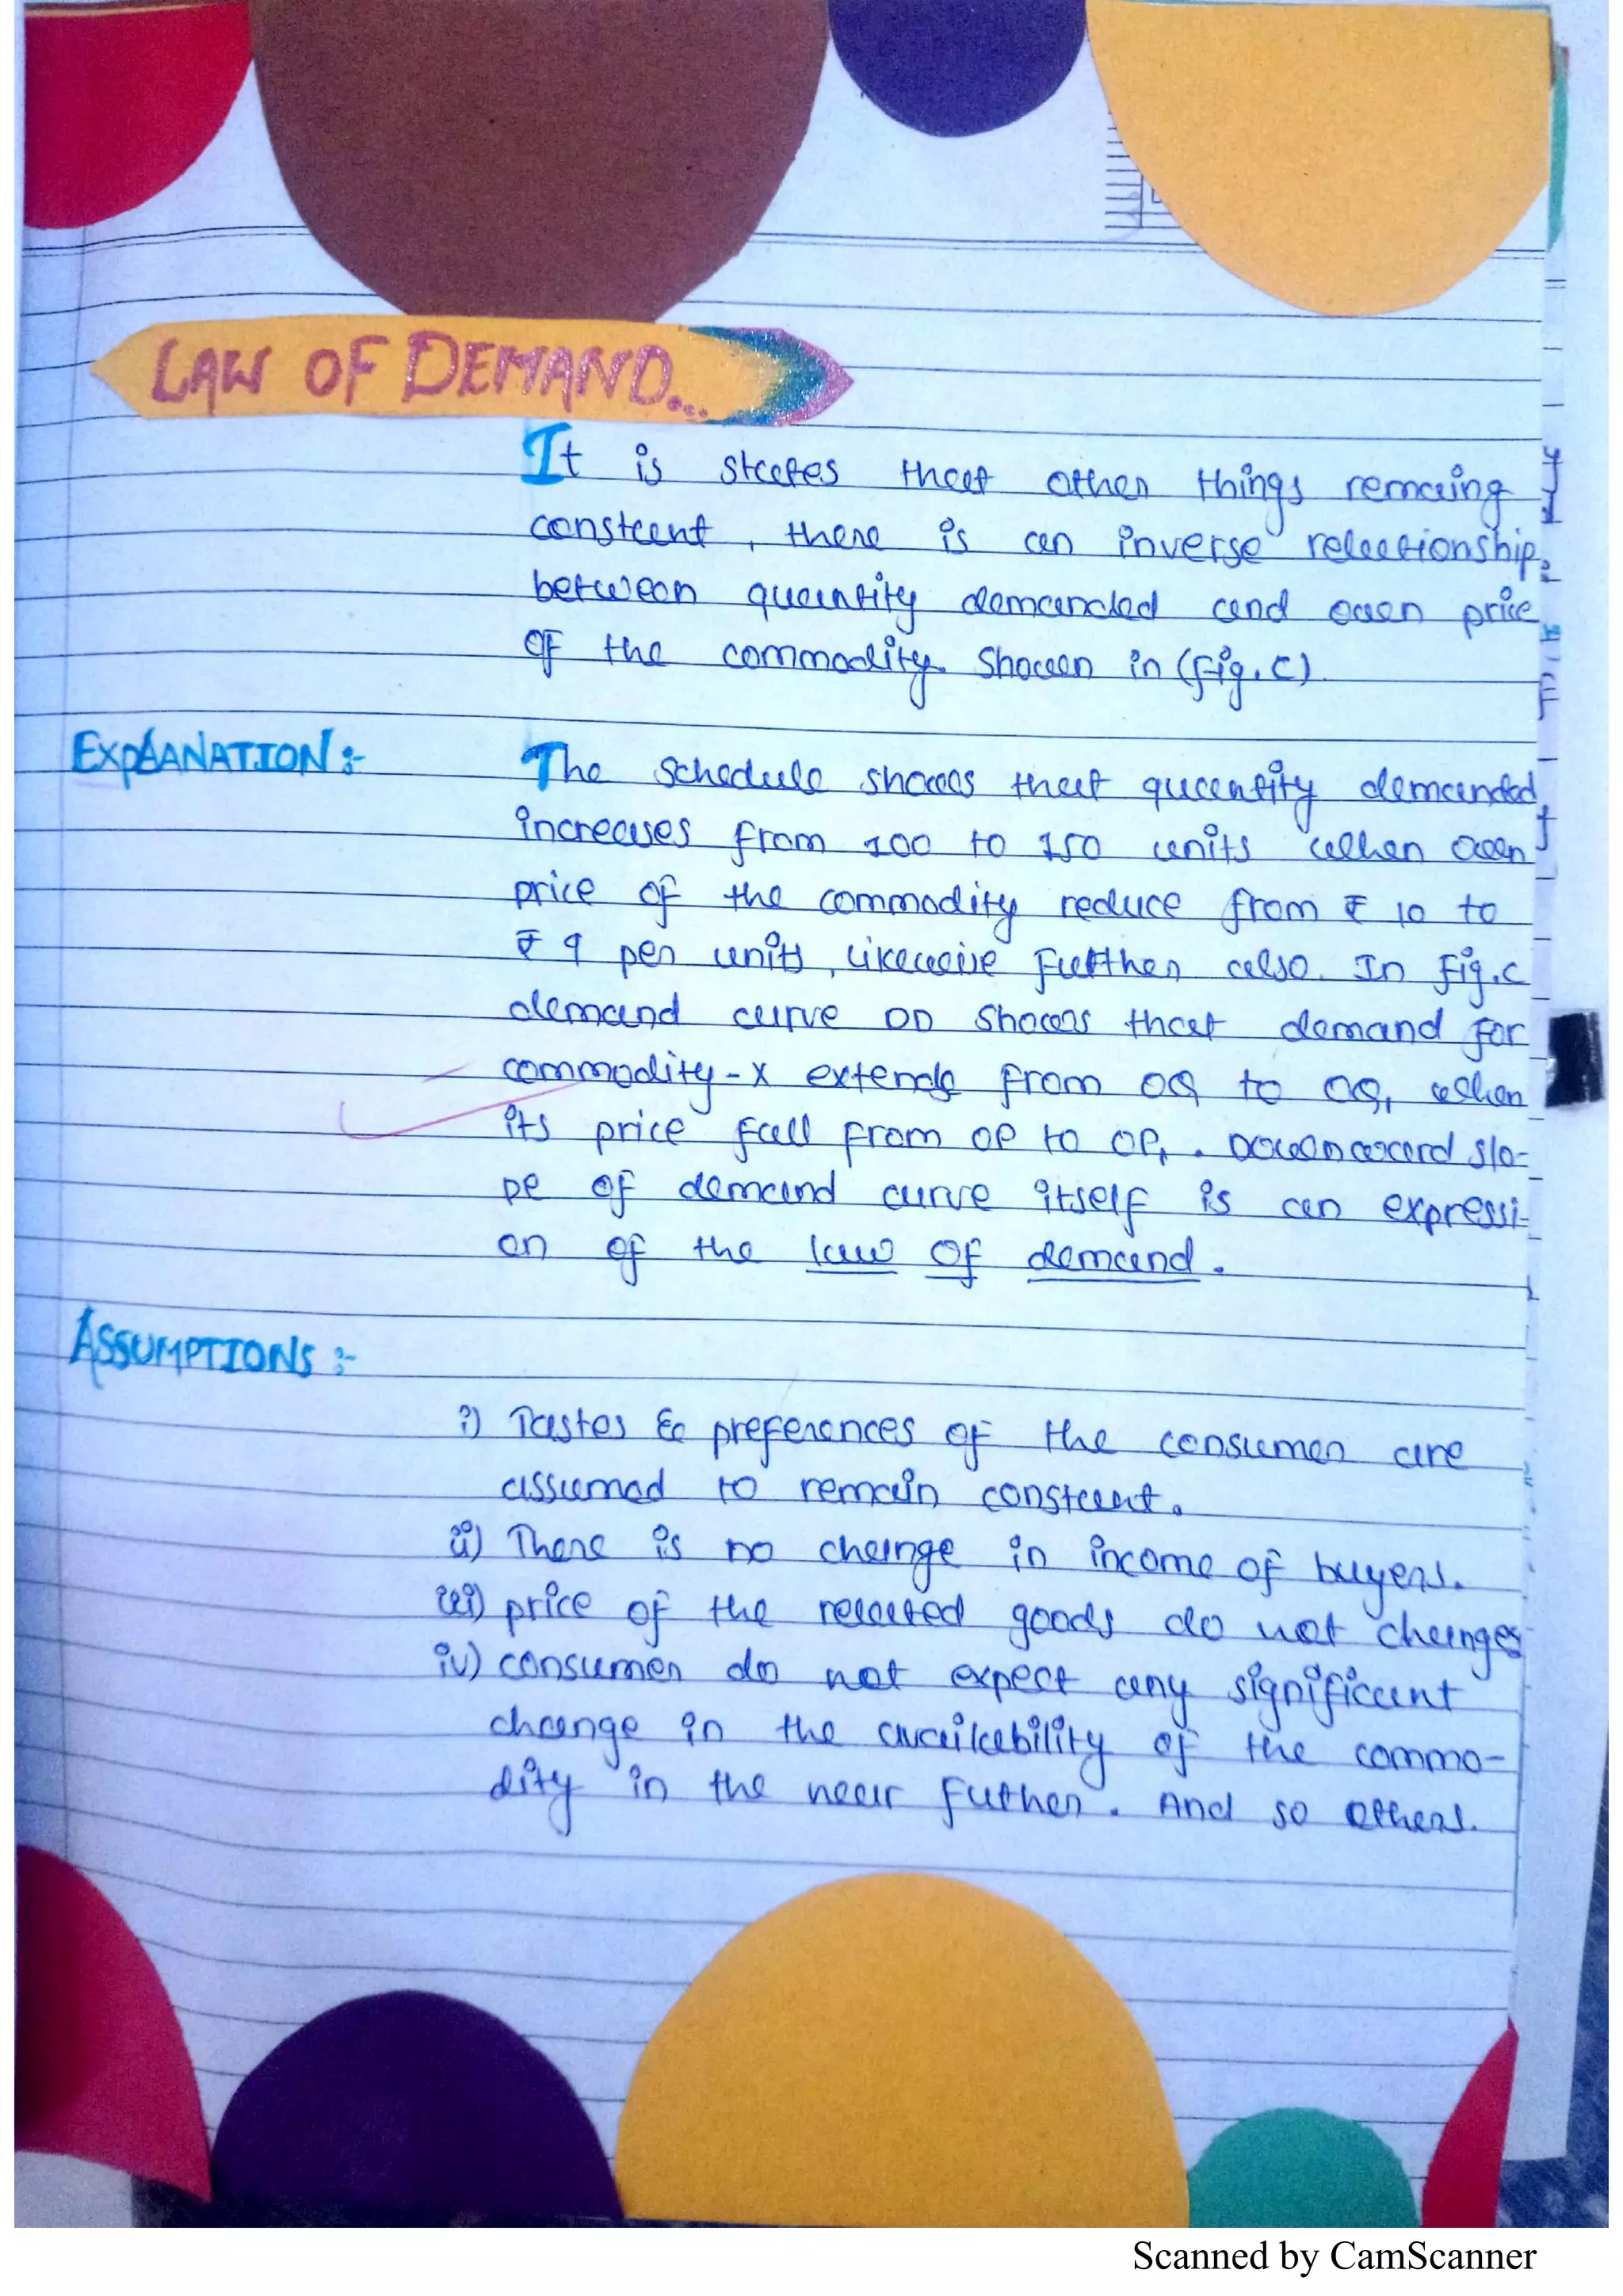 LAW OF DEMAND...
It is states that other things remaing
constant, there is an inverse relationship
between quantity demanded and own price
of the commodity. Shown in (fig.C).
EXPLANATION:-
The schedule shows that quantity demanded
increases from 100 to 150 units when own
price of the commodity reduce from ₹ 10 to
₹ 9 per units, likewise further also. In fig.c
demand curve DD shows that demand for
commodity-x extends from OQ to OQ, when
its price fall from OP to OP₁. Downward slo-
pe of demand curve itself is an expressi-
on of the law of demand.
ASSUMPTIONS:-
i) Tastes & preferences of the consumer are
assumed to remain constant.
ii) There is no change in income of buyers.
iii) price of the related goods do not changes
iv) consumer do not expect any significant
change in the availability of the commo-
dity in the near futher. And so others.
Scanned by CamScanner